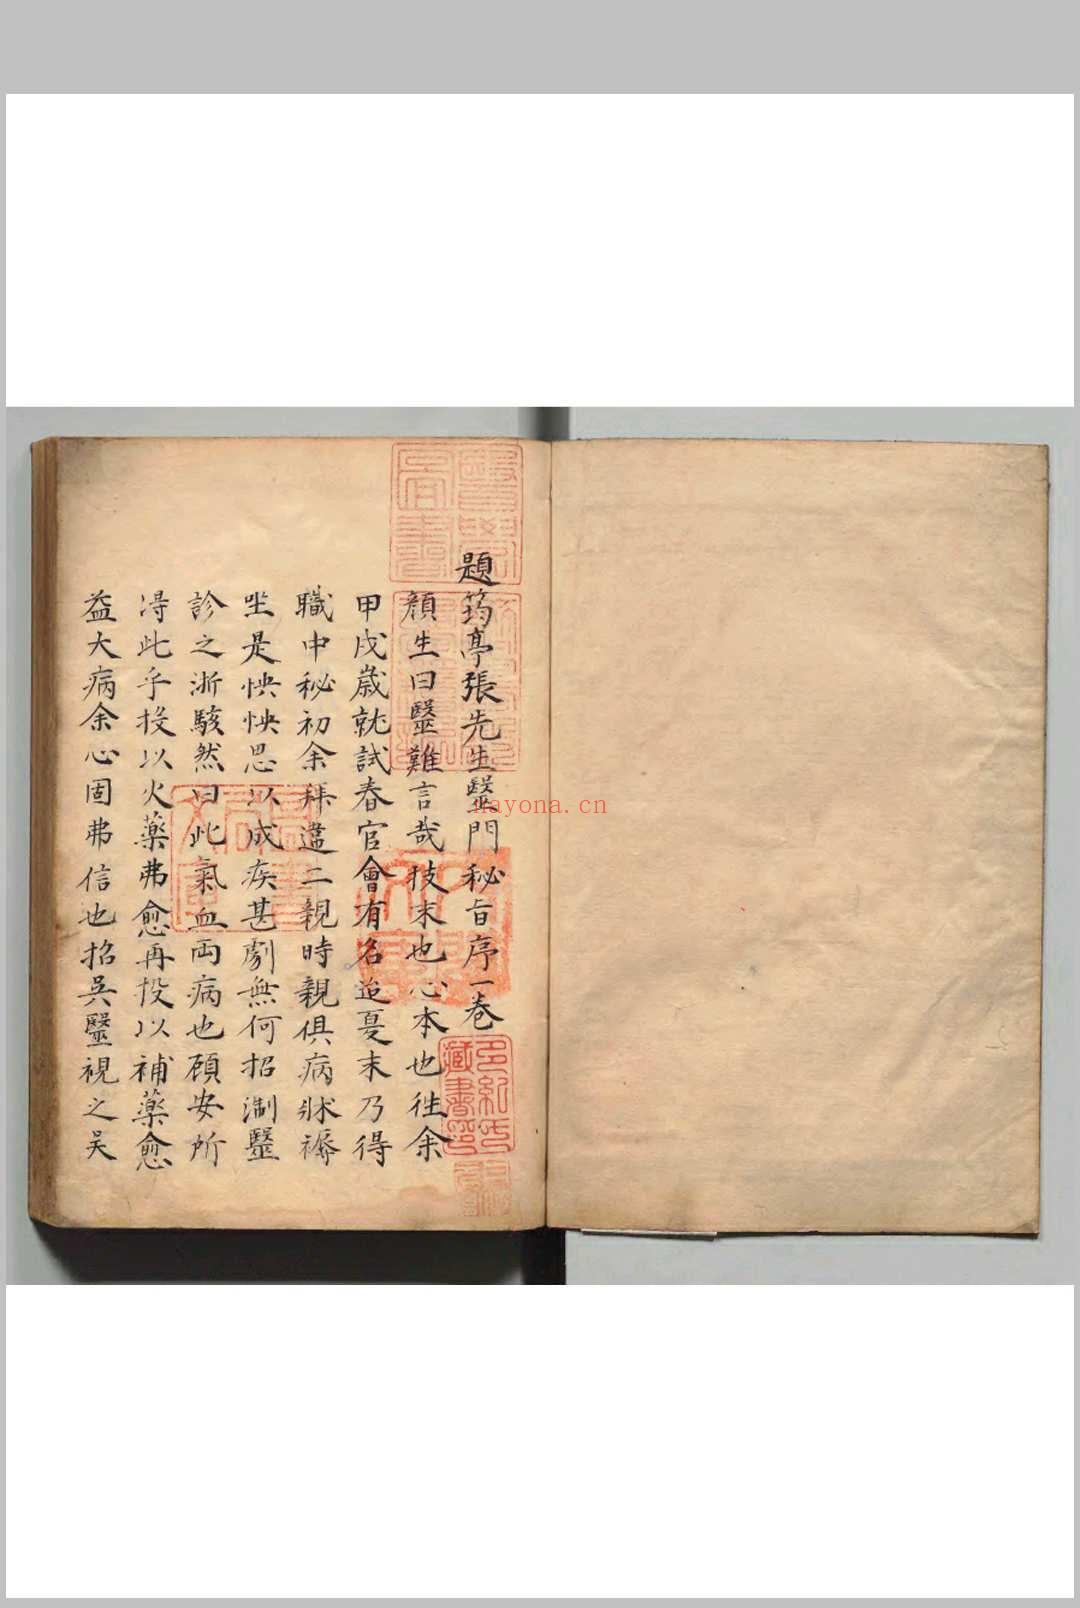 題筠亭張先生毉門秘旨序一卷
顏生曰毉難言哉技末也心本也徃余
甲戌歲就試春官會有名迨夏末乃得
職中秘初余拜違二親時親俱病牀褥
坐是怏怏思以成疾甚劇無何招淛毉
診之浙駭然曰此氣血両病也頋安所
淂此乎投以火藥弗愈再投以補藥愈
益大病余心固弗信也招吳毉視之吴
藏書印
nayona.cn